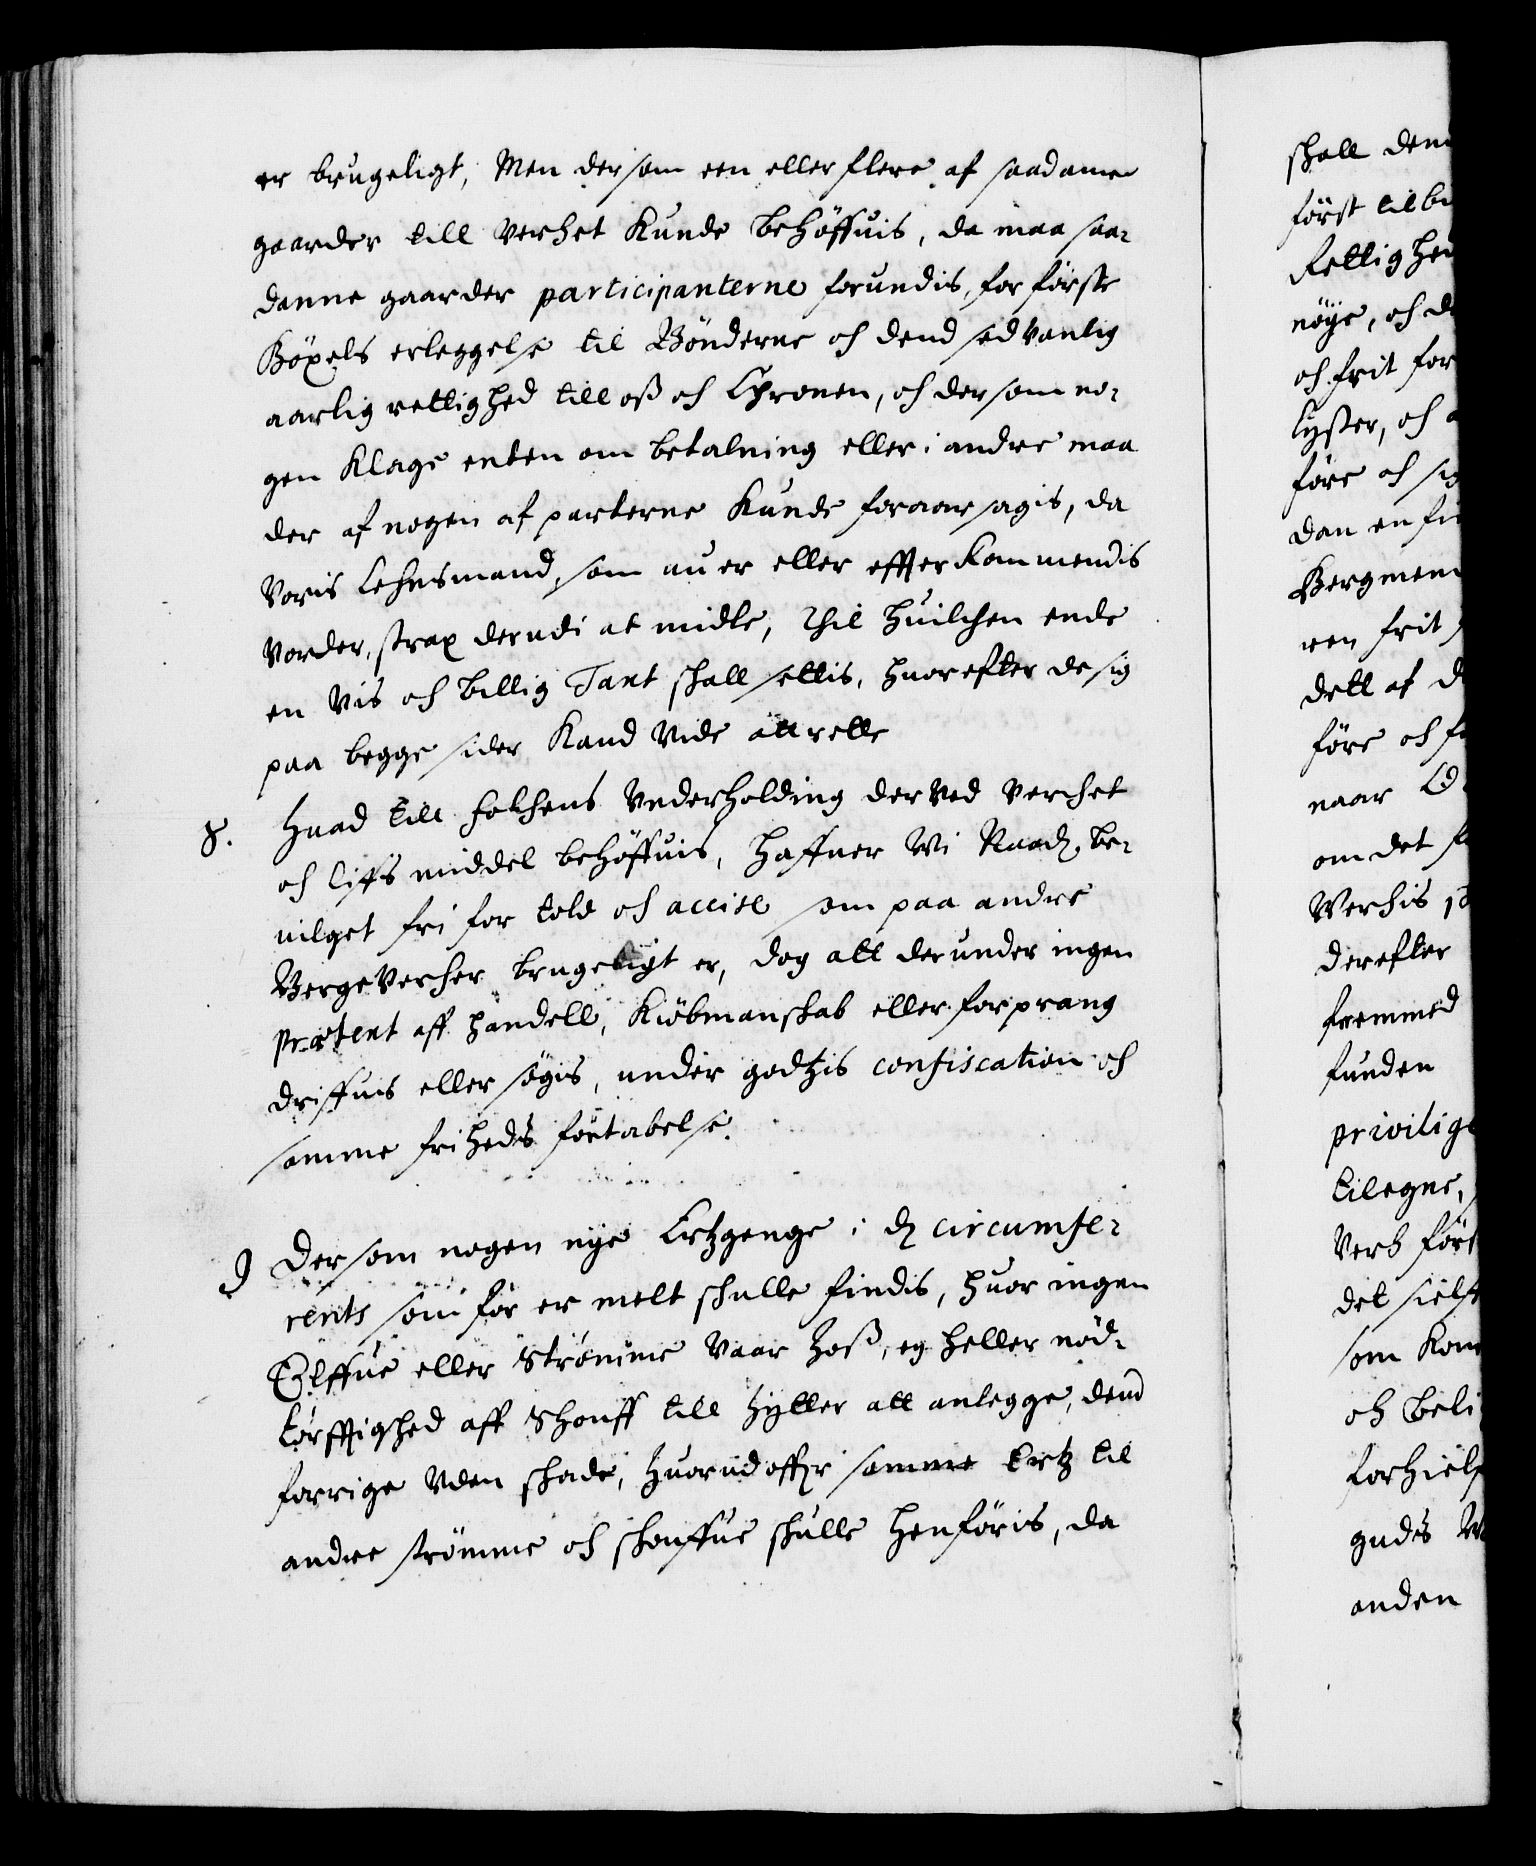 er brugeligt, Men dersom een eller flere af saadanne
gaarder till verchet Kunde behöffuis, da maa saa-
danne gaarder participanterne forundis, for förste
Böxels erleggelse til Bönderne och dend sedvanlig
aarlig rettighed till oß och Chronen, och dersom no-
gen Klage enten om betalning eller i andre maa
der af nogen af parterne Kunde foraarsagis, da
Voris Lehnsmand, som nu er eller effterkommendis
vorder, strax derudi at midle, Thil huilchen ende
en Vis och billig Taxt schall settis, huorefter de sig
paa begge sider Kand Vide att rette
8. Huad till folchens Vnderholding der Ved Verchet
och liffs middel behöffuis, haffuer Wi Naad. be-
uilget fri for told och accise som paa andre
Bergvercher brugeligt er, dog att derunder ingen
prætext aff handell, Kiöbmanskab eller forprang
driffuis eller søgis, under godtzis confiscation och
samme friheds fortabelse.
9 Dersom nogen nye Ertzgenge i dz circumfe-
rents som för er melt schulle findis, huor ingen
Elffue eller Strømme Vaar hoß, eg heller nöd-
törfftighed aff Schouff till hytter att anlegge, dend
forrige Vden schade, huorudoffr samme Ertz til
andre strömme och schouffue schulle henföris, da
schall den
först tilbu
Rettighed
nöye, och d
och frit for
lyster, och
före och sig
dan en fri
Bergmen
ren frit
dett af d
före och f
naar
om det f
Werchis
derefter
fremmed
funden
privilige
tilegne,
Verch förs
det sielff
som Kom
och beli
forhielp
guds
anden